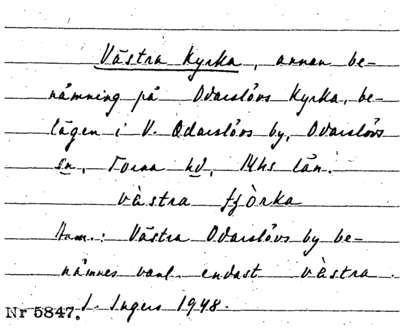 Västra Kyrka, annan be-
nämning på Odarslövs Kyrka, be-
lägen i V. Odarslövs by, Odarslövs
sn, Torna hd, Mhs län.
vàstra fjòrka
Anm.: Västra Odarslövs by be-
nämnes vanl. endast vàstra.
I. Ingers 1948.
Nr 5847.